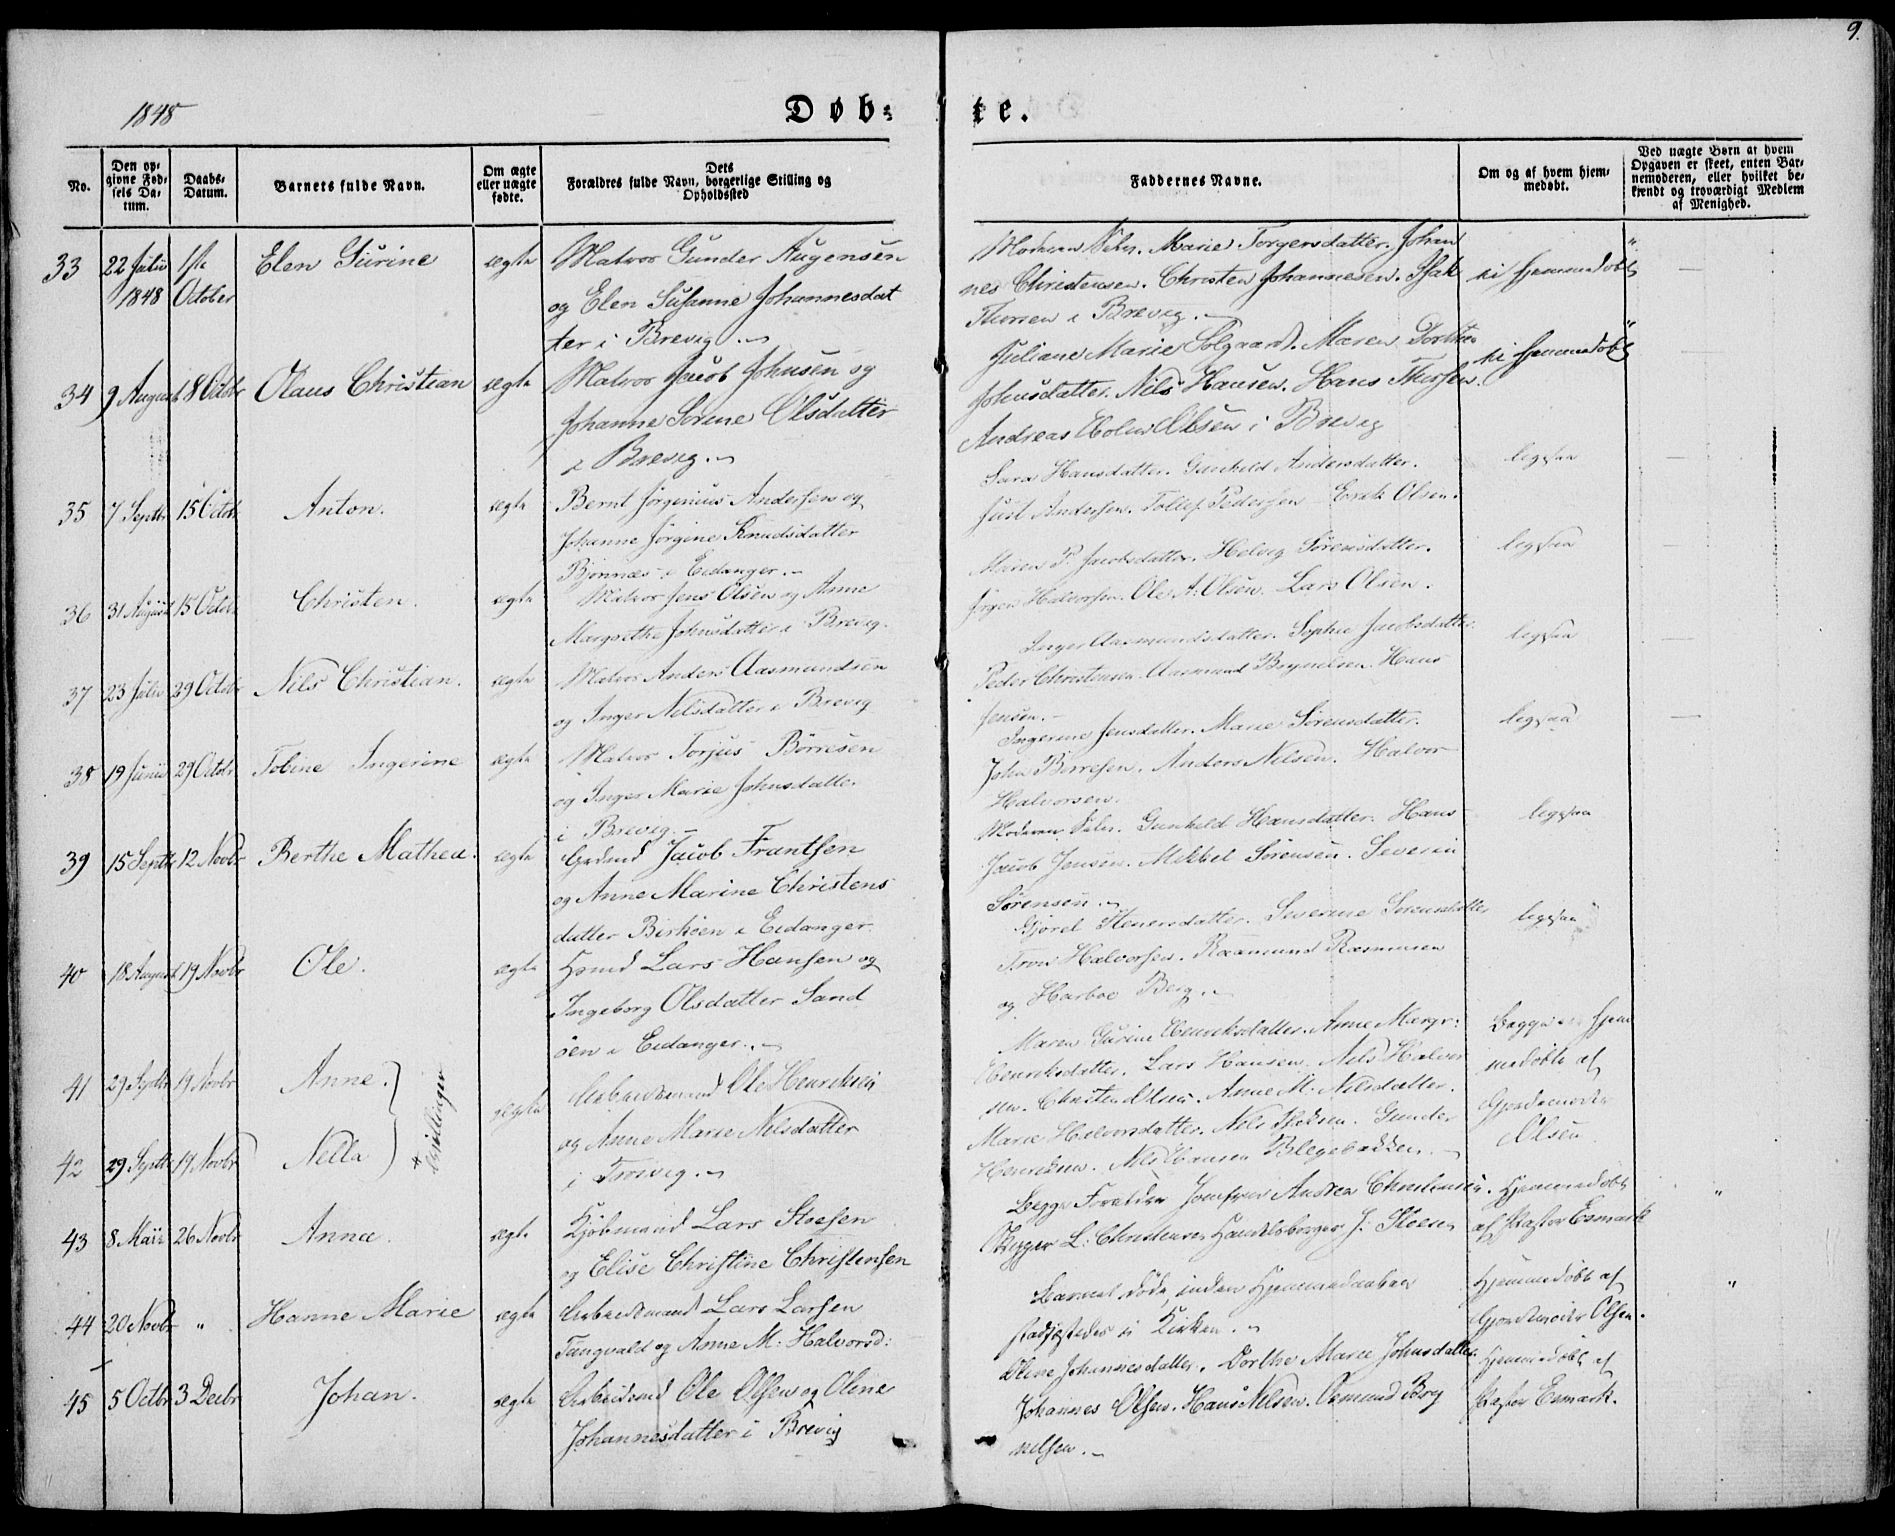 9.
1848
Døb= te.
No.
Den op=
givne Fød=
sels Da=
tum.
Daabs=
Datum.
Barnets fulde Navn.
Om ægte
eller uægte
fødte.
Dets
Forældres fulde Navn, borgerlige Stilling og
Opholdssted
Faddernes Navne.
Om og af hvem hjem=
medøbt.
Ved uægte Børn af hvem
Opgaven er skeet, enten Bar=
nemoderen, eller hvilket be=
kjendt og troværdigt Medlem
af Menighed.
33 22 Julii 1ste Elen Gurine ægte Matros Gunder Augensen
1848 October og Elen Susanne Johannesdat
ter i Brevig.
Moderen Selv. Marie Torgersdatter. Johan
nes Christensen. Christen Johannesen. Isak
Thorsen i Brevig.
ei hjemmedøbt
34 9 August 8 Octbr Olaus Christian ægte Matros Jacob Johnsen og
Johanne Sorine Olsdatter
i Brevig.
Juliane Marie Solgaard. Maren Dorthea
Johnsdatter. Nils Hansen. Hans Thorsen.
Andreas Holm Olsen i Brevig
ei hjemmedøbt
35 7 Septbr 15 Octob Anton. ægte Bernt Jørginius Andersen og
Johanne Jørgine Knudsdatter
Bjønnæs i Eidanger.
Sara Hansdatter. Gunhild Andersdatter.
Just Andersen. Tollef Pedersen Erik Olsen.
legesaa
36 31 August 15 Octob Christen. ægte Matros Jens Olsen og Anne
Margrethe Johnsdatter i Brevig.
Maren P. Jacobsdatter. Helvig Sørensdatter.
Jørgen Halvorsen. Ole A. Olsen. Lars Olsen.
legesaa
37 23 Julii 29 Octobr Nils Christian. ægte Matros Anders Aasmundsen
og Inger Nilsdatter i Brevig
Inger Aasmundsdatter. Sophie Jacobsdatter
Peder Christensen. Aasmund Brynelsen. Hans
Jensen.
legesaa
38 19 Junii 29 Octobr Tobine Ingerine ægte Matros Torjus Børresen
og Inger Marie Johnsdatter
i Brevig.
Ingerine Jensdatter. Marie Sørensdatter.
John Børresen. Anders Nilsen. Halvor
Halvorsen.
legesaa
39 15 Septbr 12 Novbr Berthe Mathea. ægte Grdmd Jacob Frantsen
og Anne Marine Christens
datter Birköen i Eidanger.
Moderen Selv. Gunhild Hansdatter. Hans
Jacob Jensen. Mikkel Sørensen. Severin
Sørensen.
legesaa
40 18 August 19 Novbr Ole. ægte Hsmd Lars Hansen og
Ingeborg Olsdatter Sand
öen i Eidanger.
Gjørel Stenersdatter. Severine Sørensdatter
Tron Halvorsen. Rasmus Rasmusen
og Harboe Berg.
legesaa
41 29 Septbr 19 Novbr Anne. ægte Arbeidsmand Ole Henriksen
42 29 Septbr 19 Novbr Nella og Anne Marie Nilsdatter
* tvillinger i Brevig.
Maren Gurine Henriksdatter. Anne Margr:
Henriksdatter. Lars Hansen. Nils Halvor
sen. Christen Olsen. Anne M. Nilsdatter.
Marie Halvorsdatter. Nils Isaksen. Gunder
Henriksen. Nils Hansen Blegebakken.
Begge hjem
medøbte af
Gjordemoder
Olsen
43 8 Maii 26 Novbr Anna. ægte Kjøbmand Lars Stoesen
og Elise Christine Christensen
Begge Forældre Jomfrue Andrea Christensen.
Skipper L. Christensen Handelsborger J. Stoesen
Hjemmedøbt
af Pastor Esmark
44 20 Novbr „ Hanne Marie ægte Arbeidsmand Lars Larsen
Tangvald og Anne M. Halvorsd:
Barnet døde, inden Hjemmedaaben
stadfæstedes i Kirken.
Hjemmedøbt af
Gjordemoder Olsen.
45 5 Octbr 3 Decbr Johan. ægte Arbeidsmd Ole Olsen og Oline
Johannesdatter i Brevig
Oline Johannesdatter. Dorthe Marie Johnsdatter
Johannes Olsen. Hans Nilsen. Osmund Bry
nelsen.
Hjemmedøbt af
Pastor Esmark.